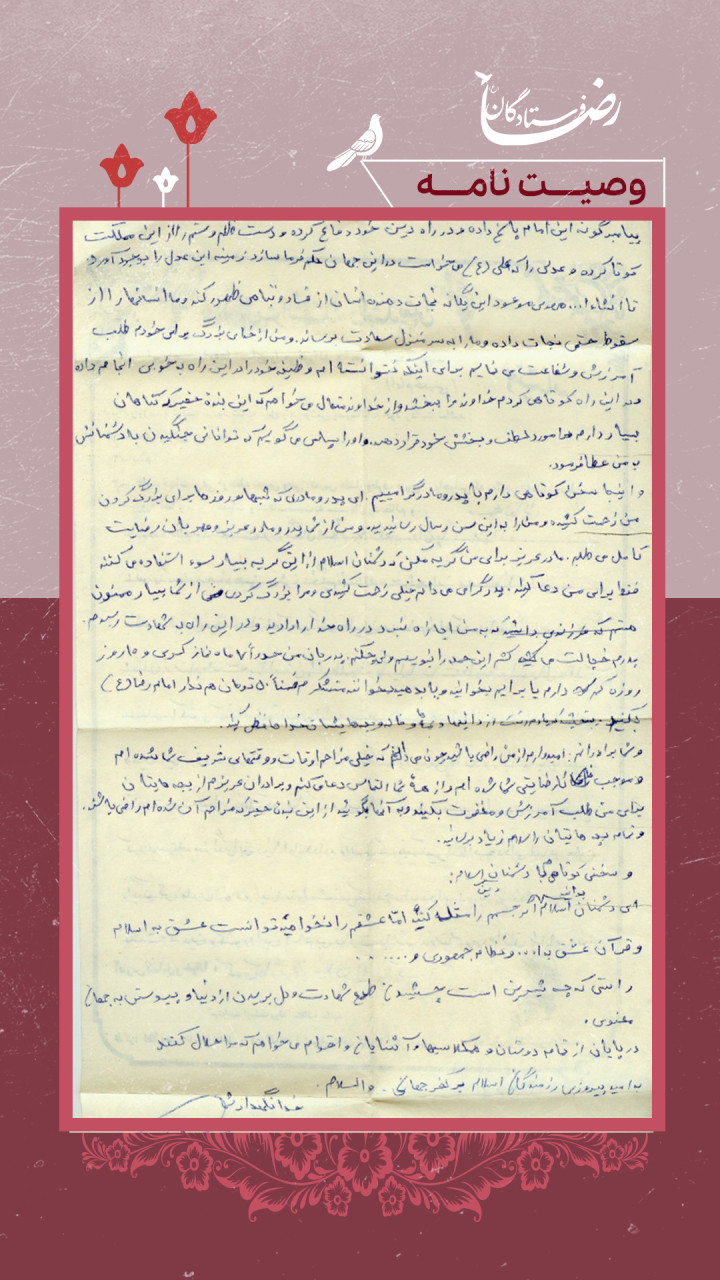 فرستادگان رضا
وصیت نامه
پیامبرگونه این امام پاسخ داده و در راه درس خود دفاع کرده و دست ظلم و ستم را از این مملکت
کوتاه کرده و عدلی را که علی (ع) می‌خواست در این جهان حکم‌فرما سازد زمینه این عدل را بوجود آورد
تا انشاءا... مهدی موعود این یگانه نجات دهنده انسان از فساد و تباهی ظهور کند و ما انسانها را از
سقوط حتمی نجات داده و ما را به سر منزل سعادت برساند. و من از خدای بزرگ برای خودم طلب
آمرزش و شفاعت می نمایم برای اینکه نتوانسته ام وظیفه خود را در این راه به خوبی انجام داده
در این راه کوتاهی کردم خداوند مرا ببخشد و از خداوند متعال می خواهم که این بنده حقیر که گناهان
بسیار دارم مرا مورد لطف و بخشش خود قرار دهد. و او را سپاس می گویم که توانائی جنگیدن با دشمنانش
به من عطا فرمود.
و اینجا سخن کوتاهی دارم با پدر و مادر گرامییم. ای پدر و مادری که شبها و روزها برای بزرگ کردن
من زحمت کشیده و مرا به این سن و سال رسانیدید. و من از شما پدر و مادر عزیز و مهربان رضایت
کامل می طلبم. مادر عزیز برای من گریه مکن که دشمنان اسلام از این گریه بسیار سوء استفاده می کنند
فقط برای من دعا کنید. پدر گرامی می دانم خیلی زحمت کشیدی و مرا بزرگ کردی من از شما بسیار ممنون
هستم که به من اجازه نبرد در راه خدا را دادید و در این راه به شهادت رسیدم.
پدرم خجالت می کشم این جمله را بنویسم ولی چکنم. پدر جان من حدوداً ۷ ماه نماز کسری و ۱۰ روز
روزه دارم یا برایم بخوانید و یا بدهید بخوانند متشکرم ضمناً ۵۰ تومان هم نذر امام رضا (ع)
از دائیها و خاله و بچه هایشان خداحافظی کنید.
و شما برادرانم: امیدوارم از من راضی باشید چون می دانم که خیلی مزاحم اوقات و وقتهای شریف شما شده ام
و موجب نارضایتی شما شده ام و از همه شما التماس دعا می کنم و برادران عزیزم از بچه هایتان
برای من طلب آمرزش و مغفرت بکنید و به آنها بگوئید از این بنده حقیر که مزاحم آن شده ام راضی باشند.
و تمام بچه هایتان را سلام زیاد برسانید.
و سخنی کوتاه با دشمنان اسلام:
ای دشمنان دین اسلام بدانید اگر جسمم را مثله کنید اما عشقم را نخواهید توانست عشق به اسلام
و قرآن عشق به ا... و نظام جمهوری و ......
راستی که چه شیرین است چشیدن طعم شهادت و دل بریدن از دنیا و پیوستن به جهان
معنوی.
در پایان از تمام دوستان و همکلاسیها و آشنایان و اقوام می خواهم که مرا حلال کنند
به امید پیروزی رزمندگان اسلام بر کفر جهانی. والسلام.
خدانگهدار شما